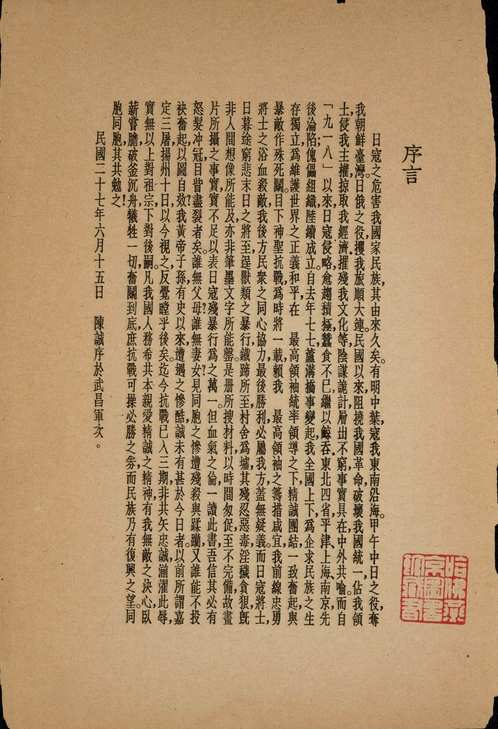 序言
日寇之危害我國家民族,其由來久矣。有明中葉,寇我東南沿海。甲午中日之役,奪
我朝鮮臺灣。日俄之役,攫我旅順大連。民國以來,阻撓我國革命,破壞我國統一,佔我領
土,侵我主權,掠取我經濟,摧殘我文化等,陰謀詭計,層出不窮,事實具在,中外共喻。而自
「九一八」以來,日寇侵略,愈趨積極,蠶食不已,繼以鯨吞,東北四省,平津,上海,南京,先
後淪陷,傀儡組織,陸續成立。自去年七七,蘆溝橋事變起,我全國上下,為企求民族之生
存獨立,為維護世界之正義和平,在 最高領袖統率領導之下,精誠團結,一致奮起,與
暴敵作殊死鬭。目下神聖抗戰,為時將一載,賴我 最高領袖之籌措咸宜,我前線忠勇
將士之浴血殺敵,我後方民衆之同心協力,最後勝利,必屬我方,蓋無疑義。而日寇將士,
日暮途窮,悲末日之將至,逞獸類之暴行,鐵蹄所至,村舍為墟,其殘忍惡毒,淫穢貪狠,既
非人間想像所能及,亦非筆墨文字所能罄。是册所搜材料,以時間匆促,至不完備,故畫
片所攝之事實,實不足以表日寇殘暴行為之萬一。但血氣之倫,一讀此書,吾信其必有
怒髮冲冠,目眥盡裂者矣。誰無父母?誰無妻女?見同胞之慘遭殘殺與蹂躪,又誰能不投
袂奮起,以圖自效?我黃帝子孫,有史以來,遭遇之慘酷,誠未有甚於今日者。以前所謂嘉
定三屠,揚州十日,以今視之,反覺瞠乎後矣。迄今抗戰已入三期,非共矢忠誠,湔濯此辱,
實無以上對祖宗,下對後嗣。凡我國人,務希共本親愛精誠之精神,有我無敵之決心,臥
薪嘗膽,破釜沉舟,犧牲一切,奮鬭到底,庶抗戰可操必勝之券,而民族乃有復興之望。同
胞同胞,其共勉之!
民國二十七年六月十五日 陳誠序於武昌軍次。